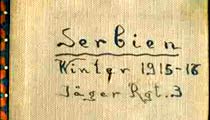 Serbien
Winter 1915-16
Jäger Rgt. 3